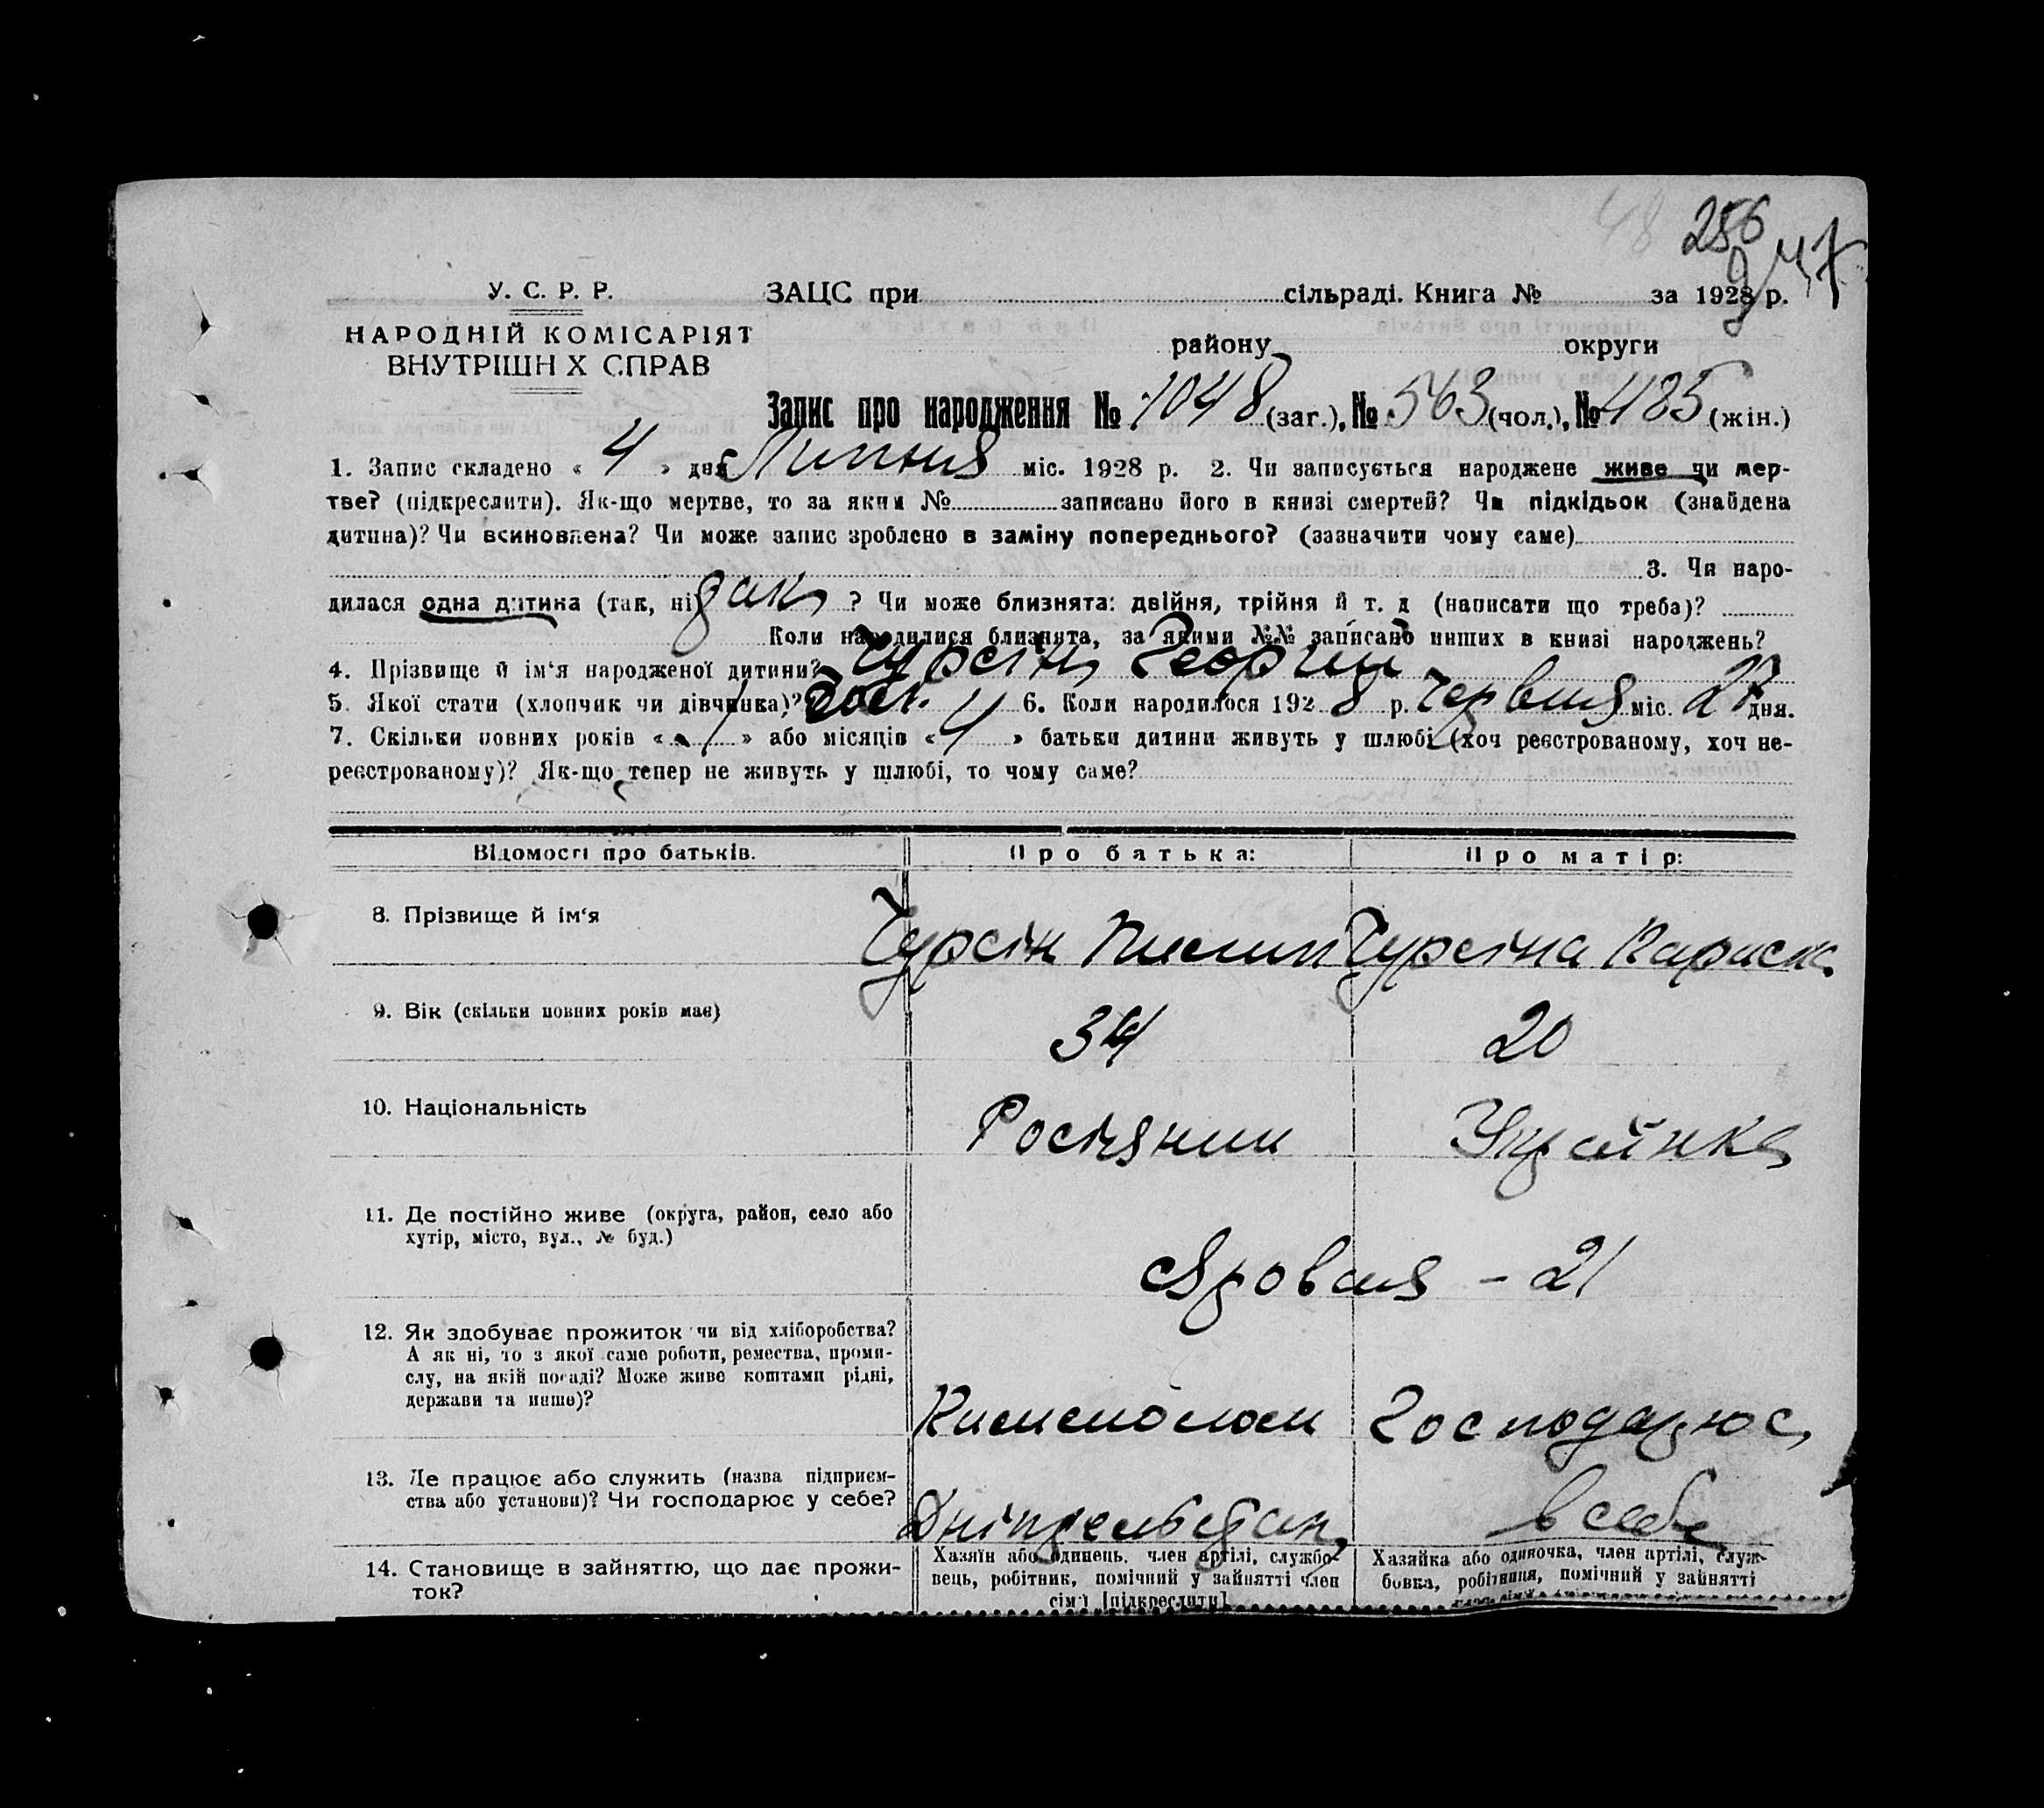 48
256
247
У. С. Р. Р.
ЗАЦС при сільраді. Книга № за 1928 р.
НАРОДНІЙ КОМІСАРІЯТ
ВНУТРІШН Х СПРАВ
району округи
Запис про народження № 1048 (заг.), № 563 (чол.), № 485 (жін.)
1. Запис складено « 4 » дня Липня міс. 1928 р. 2. Чи записується народжене живе чи мер-
тве? (підкреслити). Як-що мертве, то за яким № записано його в книзі смертей? Чи підкідьок (знайдена
дитина)? Чи всиновлена? Чи може запис зроблено в заміну попереднього? (зазначити чому саме)
3. Чи наро-
дилася одна дитина (так, ні) так ? Чи може близнята: двійня, трійня й т. д (написати що треба)?
Коли народилися близнята, за якими №№ записано инших в книзі народжень?
4. Прізвище й ім'я народженої дитини? Чурсін Георгии
5. Якої стати (хлопчик чи дівчинка)? 6. Коли народилося 1928 р. Червня міс. 27 дня.
7. Скільки повних років « 1 » або місяців « 4 » батьки дитини живуть у шлюбі (хоч реєстрованому, хоч не-
реєстрованому)? Як-що тепер не живуть у шлюбі, то чому саме?
Відомості про батьків. Про батька: Про матір:
8. Прізвище й ім'я Чурсін Чурсіна
9. Вік (скільки повних років має) 34 20
10. Національність Росіянин Україінка
11. Де постійно живе (округа, район, село або
хутір, місто, вул., № буд.)
Яровая - 21
12. Як здобуває прожиток чи від хліборобства?
А як ні, то з якої саме роботи, ремества, проми-
слу, на якій посаді? Може живе коштами рідні,
держави та инше)?
Господарює
13. Де працює або служить (назва підприєм-
ства або установи)? Чи господарює у себе?
в себе
14. Становище в зайняттю, що дає прожи-
ток?
Хазяїн або одинець, член артілі, службо-
вець, робітник, помічний у зайнятті член
сім'ї [підкреслити]
Хазяйка або одиночка, член артілі, служ-
бовка, робітниця, помічний у зайнятті